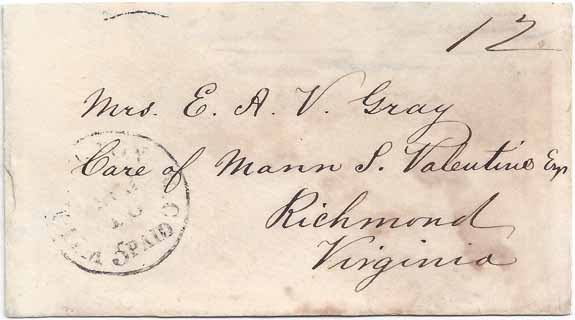 12
Mrs. E. A. V. Gray
Care of Mann S. Valentine Esq
Richmond
Virginia
PAID